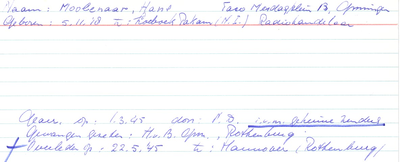 Naam : Moolenaar, Hans Taco Mesdagplein 13, Groningen
Geboren : 5.11.18 te : Pakam (N.I.) Radiohandelaar
Gearr. op : 1.3.45 door : i.v.m. geheime zender
Gevangen gezeten : H.v.B. Gron., Rothenburg
Overleden op : 22.5.45 te : Hannover (Rothenburg)